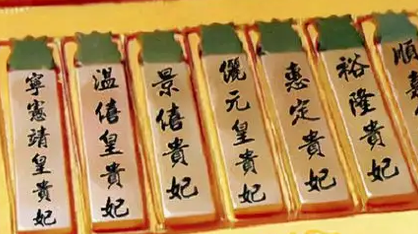 寧憲靖皇貴妃
溫僖皇貴妃
景僖貴妃
儷元皇貴妃
惠定貴妃
裕隆貴妃
順